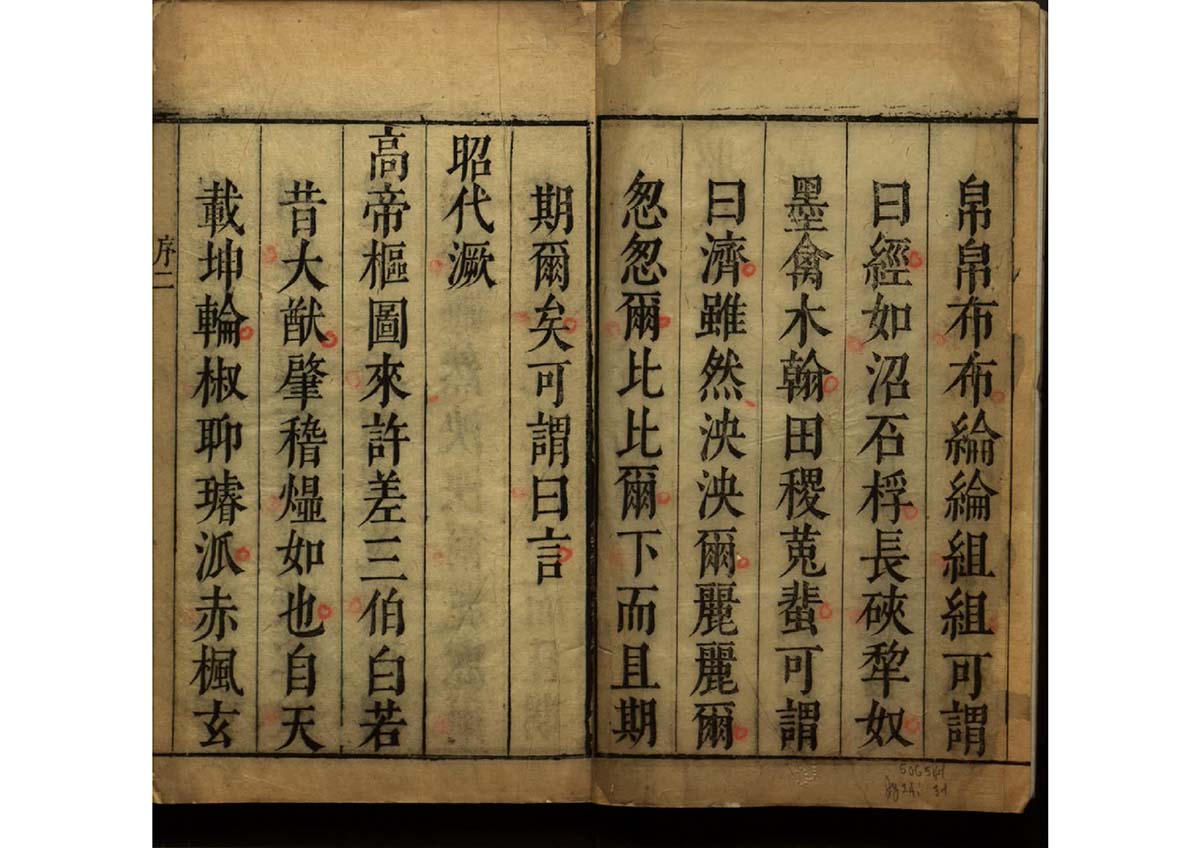 帛帛布布綸綸組組可謂
曰經如沼石桴長硤犂奴
墨禽木翰田稷菟蜚可謂
曰濟雖然泱泱爾麗麗爾
怱怱爾比比爾下而且期
期爾矣可謂曰言
昭代濺
高帝樞圖來許差三伯白若
昔大猷肇稽熅如也自天
載坤輪椒聊璿派赤楓玄
序二